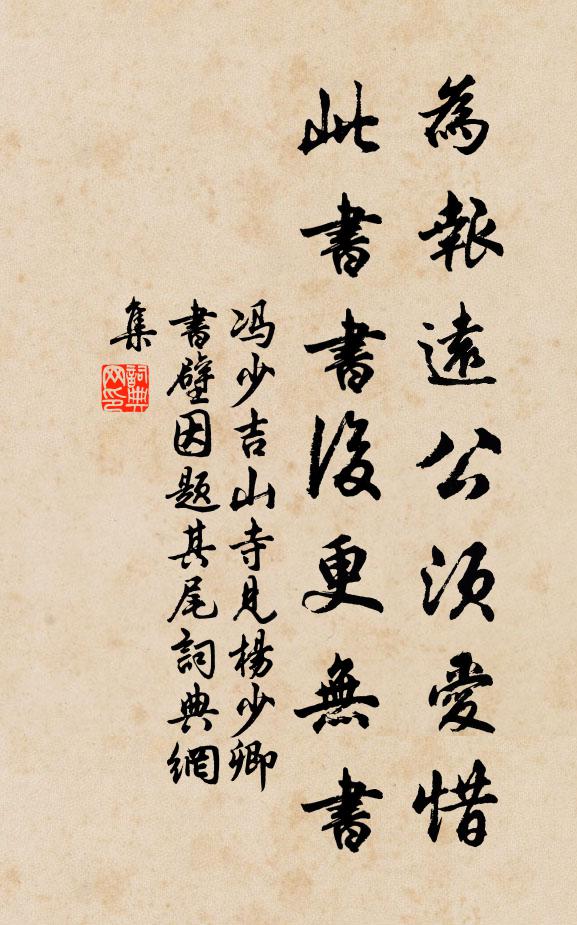 為報遠公須愛惜
此書書後更無書
冯少吉山寺見楊少卿
書壁因題其尾詞典網
集
詞典
网印